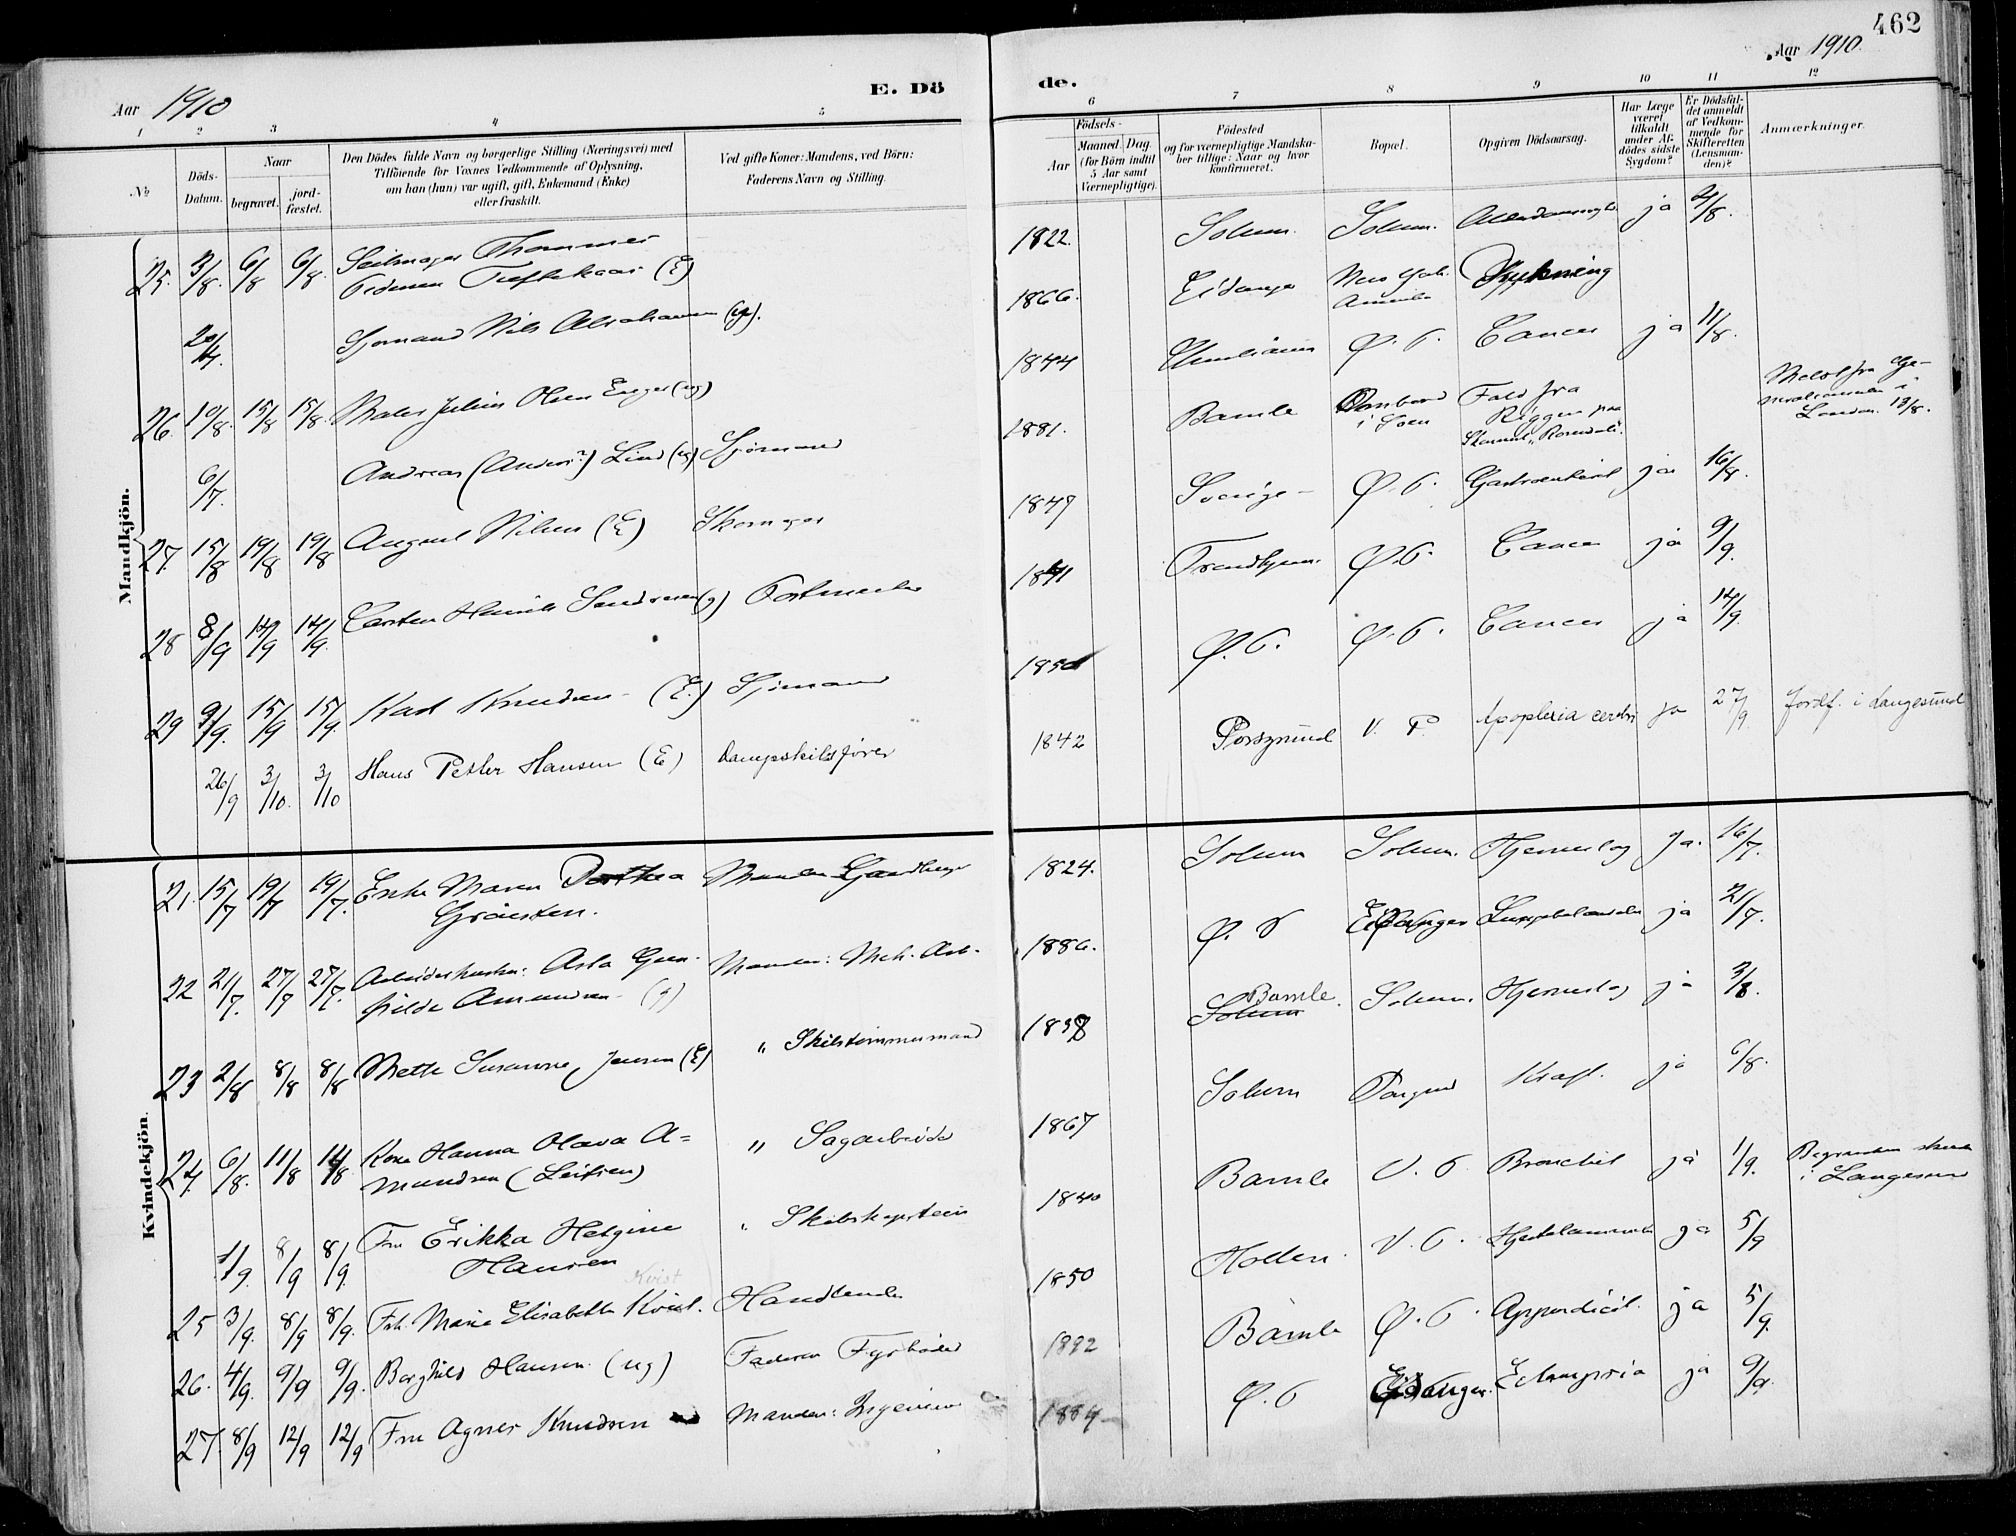 462
Aar 1910
E. Dö
de.
Aar 1910.
1 2 3 4 5 6 7 8 9 10 11 12
№
Döds-Datum.
Naar
begravet.
jord-fæstet.
Den Dödes fulde Navn og borgerlige Stilling (Næringsvei) med
Tilföiende for Voxnes Vedkommende af Oplysning,
om han (hun) var ugift, gift, Enkemand (Enke)
eller fraskilt.
Ved gifte Koner: Mandens, ved Börn:
Faderens Navn og Stilling.
Födsels-
Aar
Maaned. Dag.
(for Börn indtil
5 Aar samt
Værnepligtige).
Födested
og for værnepligtige Mandska-
ber tillige: Naar og hvor
konfirmeret.
Bopæl.
Opgiven Dödsaarsag.
Har Læge
været
tilkaldt
under Af-
dödes sidste
Sygdom?
Er Dödsfal-
det anmeldt
af Vedkom-
mende for
Skifteretten
(Lensman-
den)?
Anmærkninger.
Mandkjön.
25. 3/8. 6/8 6/8. Seilmager Thommes 1822. Solum. Solum. ja 4/8.
Tidemen Tuftekaas (E)
20/4. Sjømand Nils Abrahamsen (g). 1866. Eidanger New York Amerika
26. 10/8. 15/8 15/8. Maler Julius Olsen Enger (ug) 1844 Ø. P. Cancer ja 11/8.
6/7. Andreas (Anders?) Lind (ug) Sjømand 1881. Bamble Ombord i Søen Fald fra Riggen paa Skonnert "Rosendal". Meldt fra Ge-
neralkonsulen i
London 13/8.
27. 15/8 19/8 19/8 August Nilsen (E) Skomager 1847 Sverige - Ø. P. ja 16/8.
28 8/9 14/9 14/9. Carsten Henrik Sandresen (g) Postmester 1841 Trondhjem. Ø. P. Cancer ja 9/9.
29 9/9. 15/9 15/9. Karl Knudsen - (E.) Sjømand Ø. P. Ø. P. Cancer ja 14/9.
26/9 3/10. 3/10 Hans Petter Hansen (E) Dampskibsfører 1842 Porsgrund V. P. Apoplexia cerebri ja 27/9. Jordf. i Langesund
Kvindekjön.
21. 15/7 19/7 19/7. Enke Maren Dorthea Manden Gaardbruger 1824. Solum Solum. Hjerneslag Ja. 16/7.
Graasten.
22 21/7. 27/7 27/7. Arbeiderhustru: Asla Gun- Manden: Mek. Arb. 1886. Ø. P Eidanger ja 21/7.
hilde Amundsen (g)
23 2/8 8/8 8/8 Mette Susanne Jensen (E) " Skibstømmermand 1838 Bamble. Solum Solum. Hjerneslag ja 3/8.
24. 6/8. 11/8 11/8 Kone Hanna Olava A= " Sagarbeider 1867 Solum Porsgrund Kræft. ja 6/8.
mundsen (Leifsen)
1/9. 8/9 8/9. Fru Erikka Helgine " Skibskaptein 1840 Bamble V. P. Bronchit ja 1/9. Begravelsen skede
i Langesund
Hansen
Kvist
25 3/9. 8/9 8/9. Frk. Marie Elisabeth Kvist. Handlende 1850 Holten. V. P. ja 5/9
26. 4/9. 9/9 9/9. Borghild Hansen (ug) Faderen Fyrbøder 1892 Bamble Ø. P. Appendicit. ja 5/9.
27. 8/9 12/9 12/9 Fru Agnes Knudsen Manden: Ingeniør 1884 Ø. P Eidanger. Eclampsia ja 9/9.